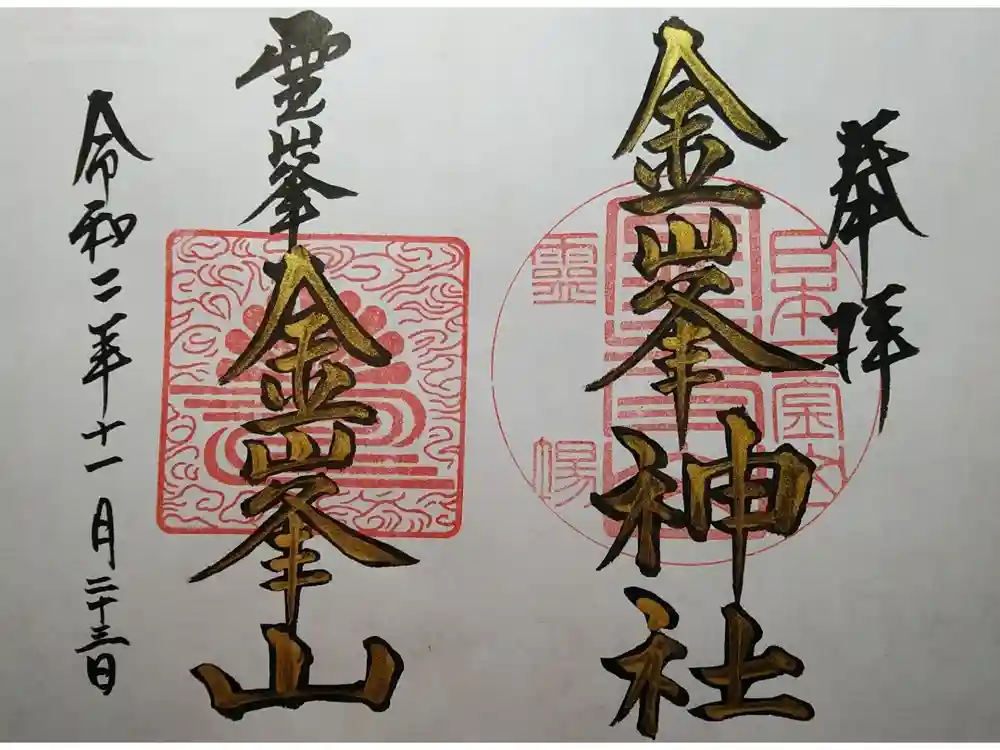 奉拝
金峯神社
日本三金峯
靈場
霊峯
金峯山
令和二年十一月二十三日